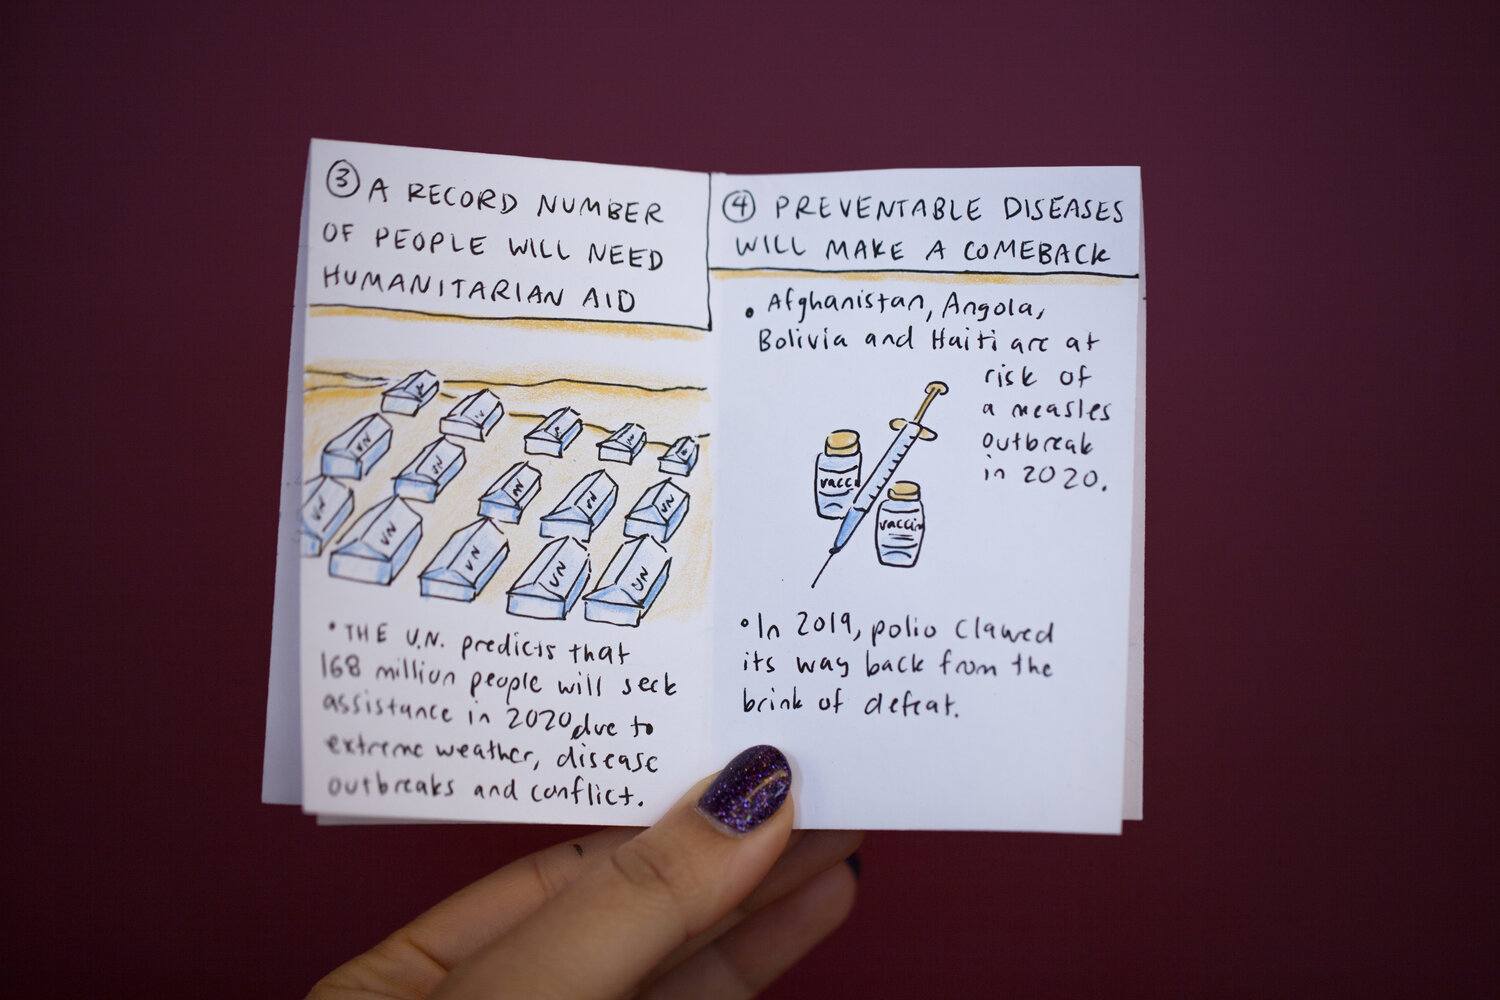 ③ A RECORD NUMBER
OF PEOPLE WILL NEED
HUMANITARIAN AID
UN
UN
UN
UN
UN
UN
UN
UN
UN
UN
UN
• THE U.N. predicts that
168 million people will seek
assistance in 2020, due to
extreme weather, disease
outbreaks and conflict.
④ PREVENTABLE DISEASES
WILL MAKE A COMEBACK
• Afghanistan, Angola,
Bolivia and Haiti are at
risk of
a measles
outbreak
in 2020.
vacci
vaccin
• In 2019, polio clawed
its way back from the
brink of defeat.